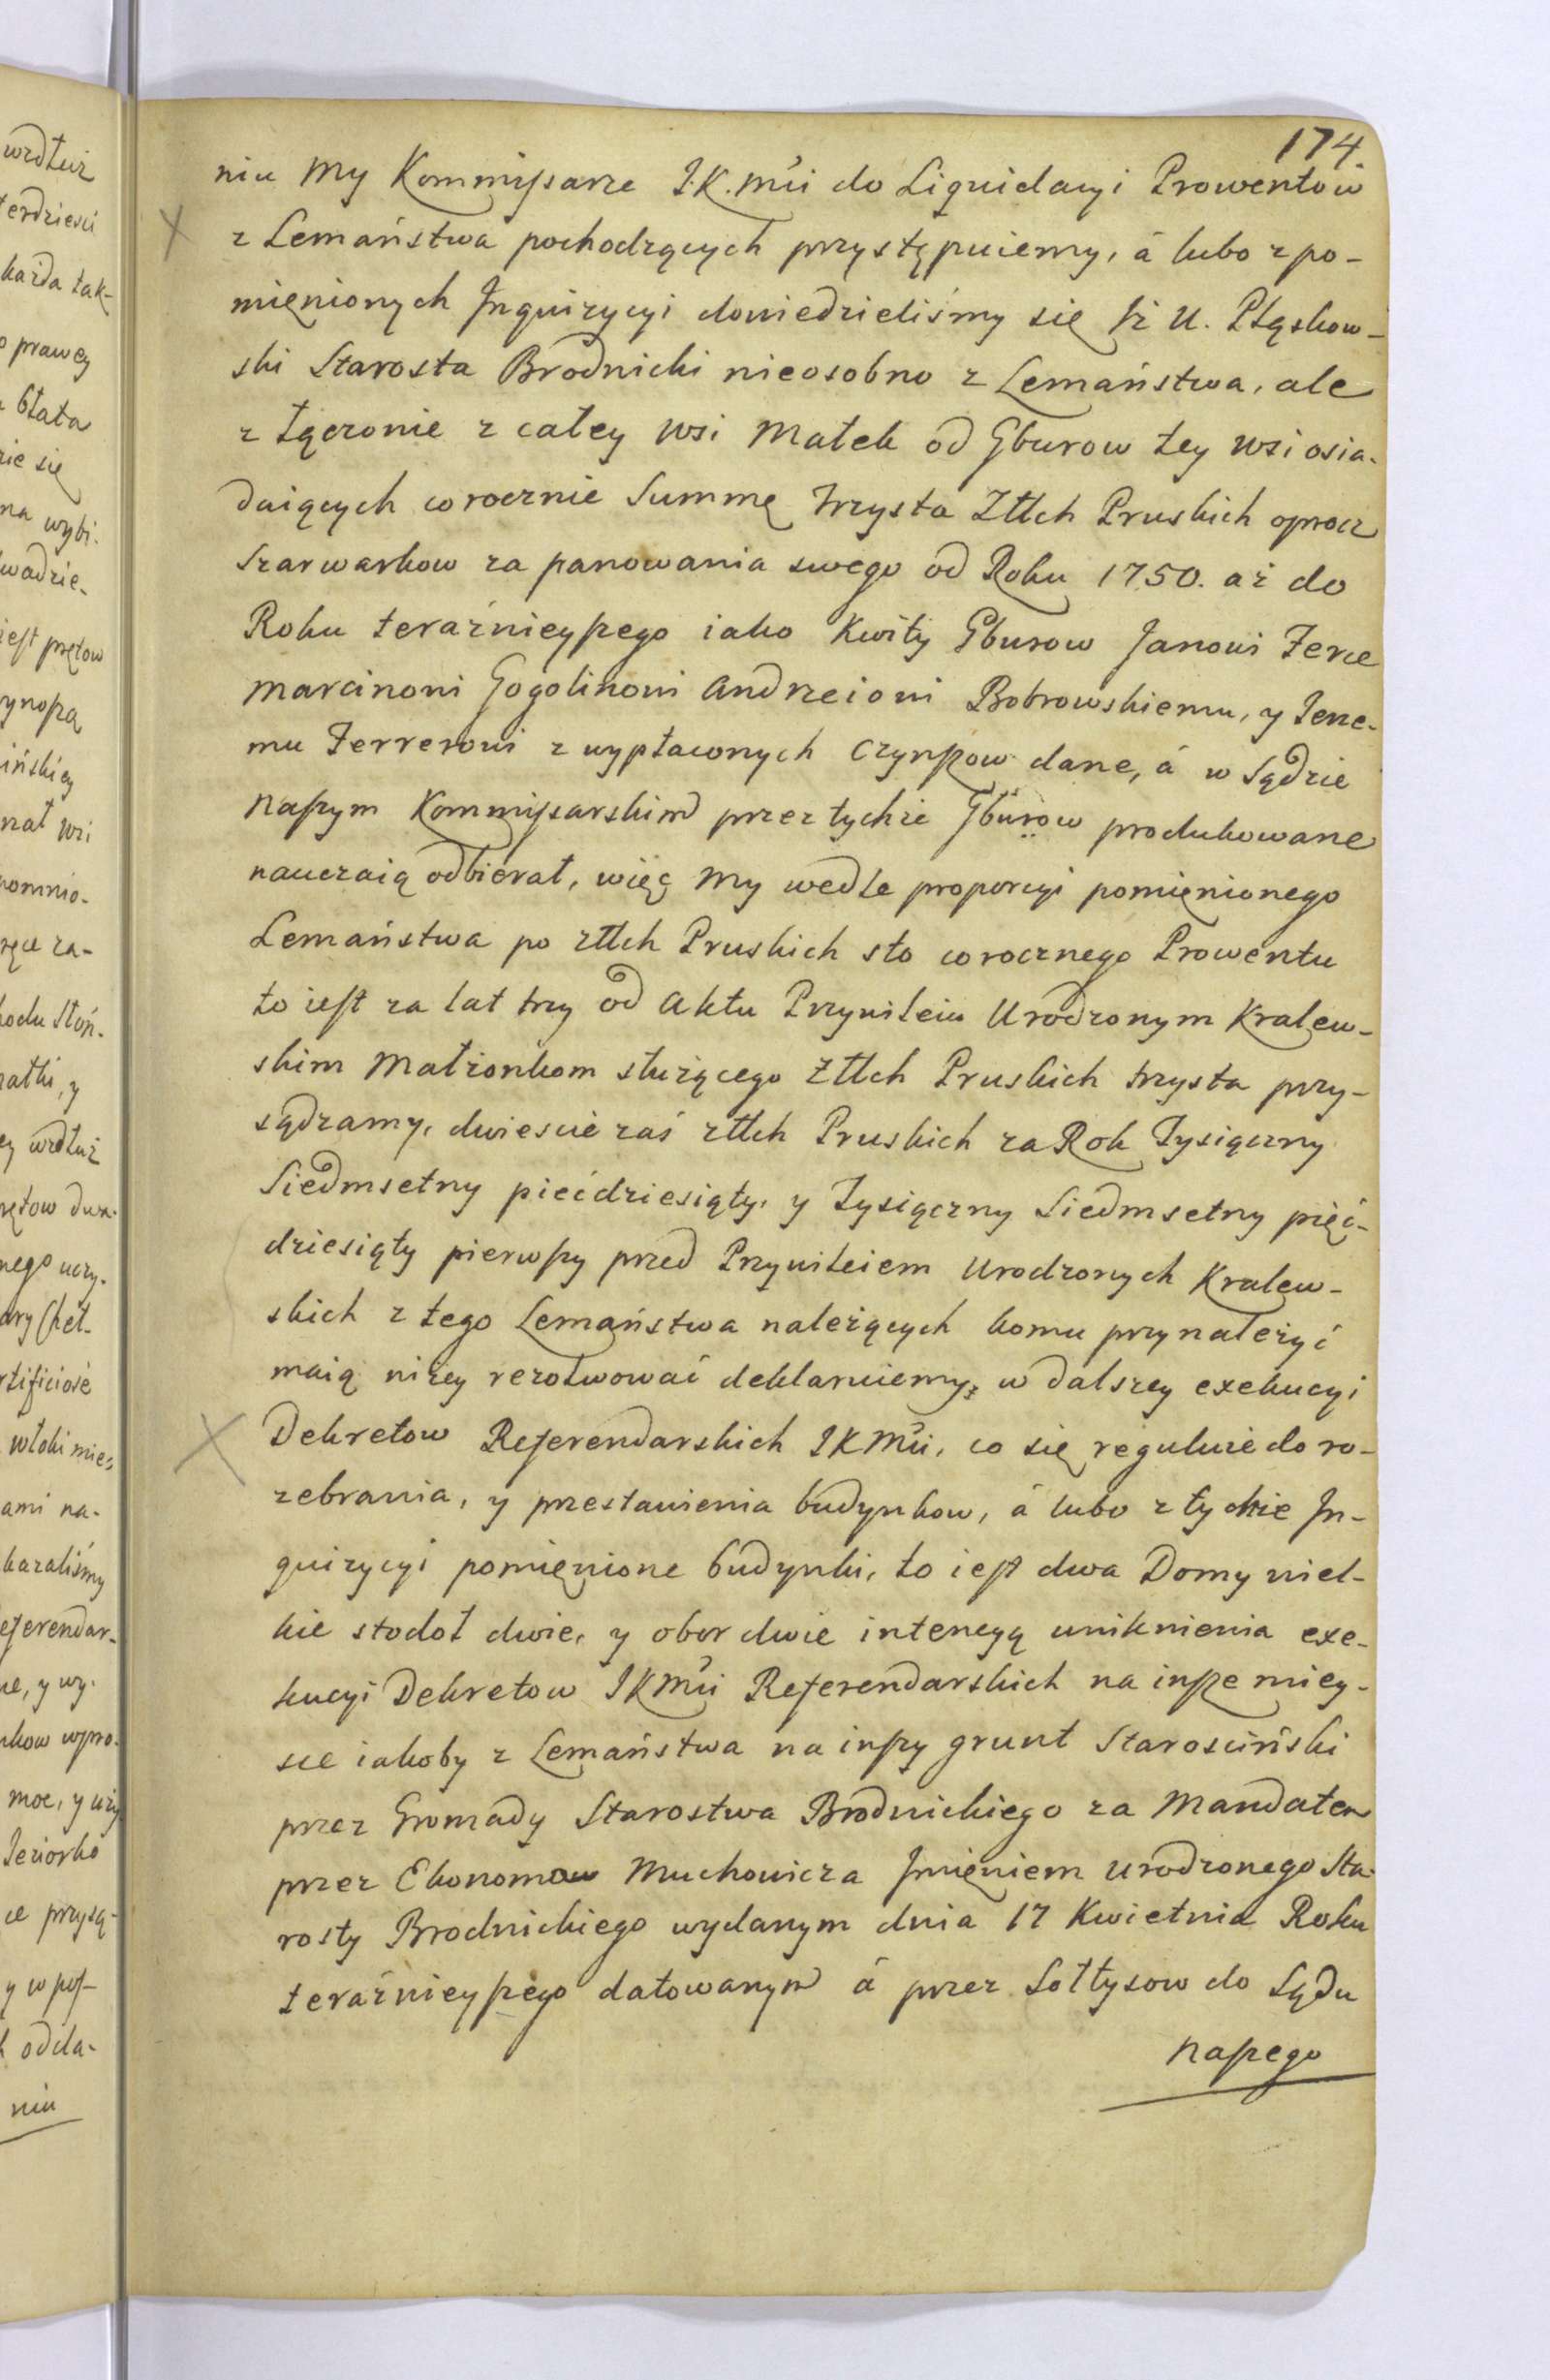 174.
niu My Kommissarze J.K.Mci do Liquidacyi Prowentow
z Lemaństwa pochodzących przystępuiemy, á lubo z po-
mienionych Jnquizycyi dowiedzieliśmy się Jż U. Pląskow-
ski Starosta Brodnicki nieosobno z Lemaństwa, ale
z łączonie z całey wsi Małek od Gburow tey wsi osia-
daiących corocznie Summę trzysta Złłch Pruskich oprocz
Szarwarkow za panowania swego od Roku 1750. aż do
Roku teraźnieyszego iako Kwity Gburow Janowi Zerce
Marcinowi Gogolinowi Andrzeiowi Bobrowskiemu, y Jerze-
mu Ferrerowi z wypłaconych Czynszow dane, á w Sądzie
Naszym Kommissarskim przez tychże Gburow produkowane
nauczaią odbierał, więc My wedle proporcyi pomienionego
Lemaństwa po złłch Pruskich sto corocznego Prowentu
to iest za lat trzy od Aktu Przywileiu Urodzonym Kralew-
skim Małżonkom służącego Złłch Pruskich trzysta przy-
sądzamy, dwiescie zaś złłch Pruskich za Rok Tysiączny
Siedmsetny piećdziesiąty, y Tysiączny Siedmsetny pięć-
dziesiąty pierwszy przed Przywileiem Urodzonych Kralew-
skich z tego Lemaństwa należących komu przynależyć
maią niżey rezolwować deklaruiemy, w dalszey exekucyi
Dekretow Referendarskich JKMci, co się reguluie do ro-
zebrania, y przestawienia budynkow, á lubo z tychże Jn-
quizycyi pomienione budynki, to iest dwa Domy wiel-
kie stodoł dwie, y obor dwie intencyą uniknienia exe-
kucyi Dekretow JKMci Referendarskich na insze miey-
sce iakoby z Lemaństwa na inszy grunt Starościński
przez Gromady Starostwa Brodnickiego za Mandatem
przez Ekonoma Muchowicza Jmieniem Urodzonego Sta-
rosty Brodnickiego wydanym dnia 17 Kwietnia Roku
teraźnieyszego datowanym á przez Sołtysow do Sądu
naszego